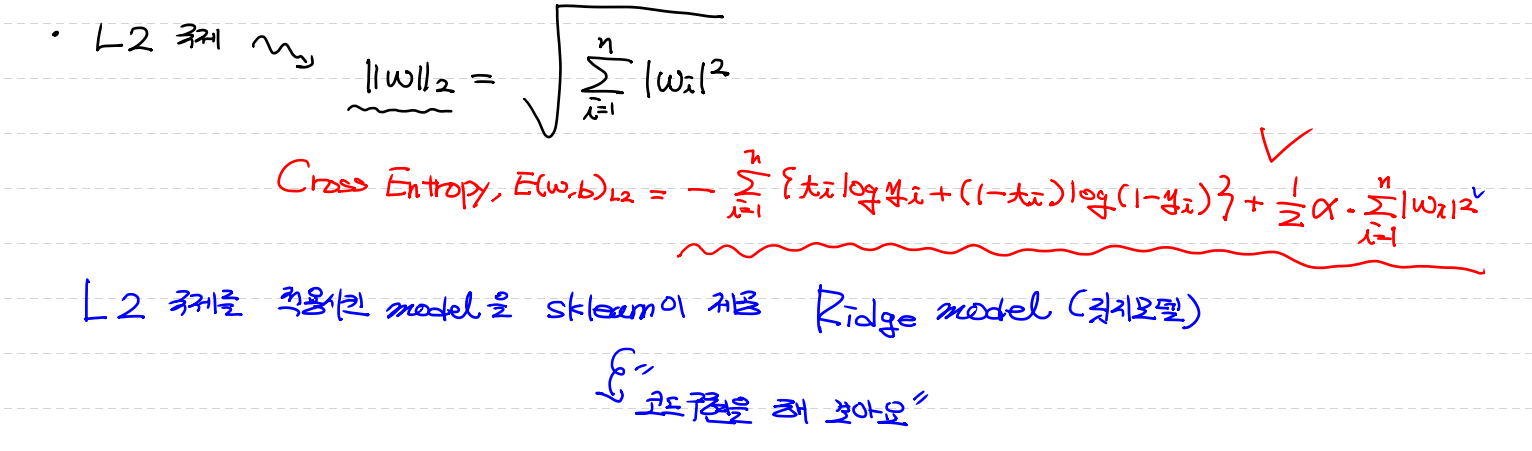 · L2 규제 ‖w‖₂ = √(∑_{i=1}^{n} |wᵢ|²)
Cross Entropy, E(w,b)_{L2} = - ∑_{i=1}^{n} {tᵢ log yᵢ + (1-tᵢ) log(1-yᵢ)} + 1/2 α · ∑_{i=1}^{n} |wᵢ|²
L2 규제를 적용시킨 model을 sklearn이 제공 Ridge model (릿지모델)
"코드구현을 해 보아요"